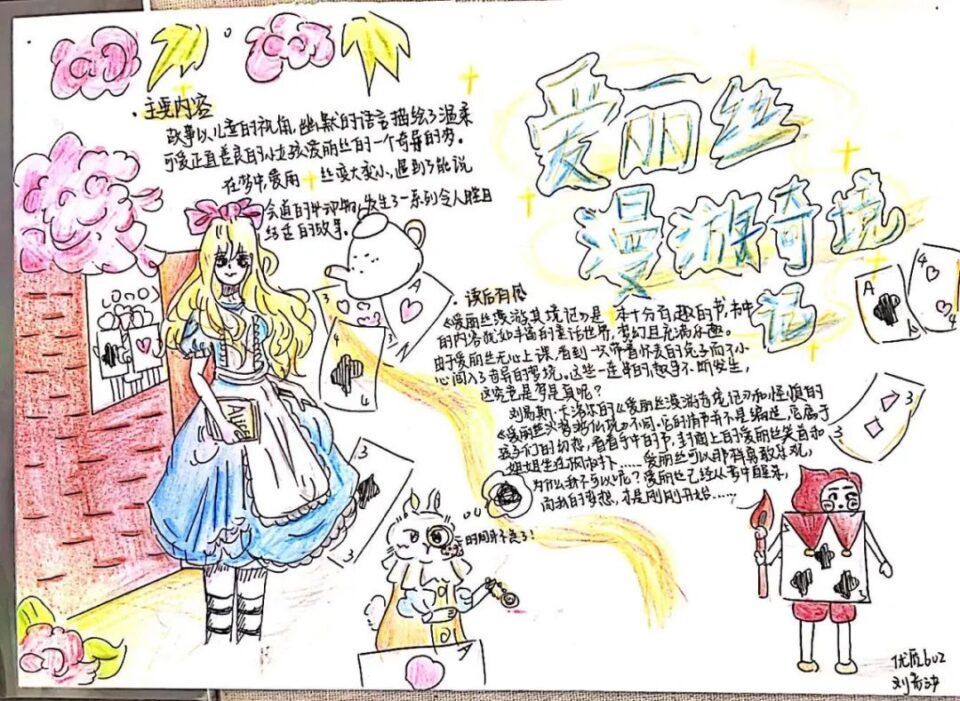 爱丽丝
漫游奇境
记
·主要内容
故事以儿童的视角,幽默的语言描绘了温柔
可爱正直善良的小女孩爱丽丝的一个奇异的梦。
在梦中,爱丽丝变大变小,遇到了能说
会道的,发生了一系列令人瞠目
结舌的故事。
·读后有感
《爱丽丝漫游奇境记》是一本十分有趣的书,书中
的内容童话世界,梦幻且充满乐趣。
由于爱丽丝无心上课,看到一只带着怀表的兔子而不小
心闯入了奇异的梦境。这些一连串的故事不断发生,
这究竟是梦是真呢?
刘易斯·卡洛尔的《爱丽丝漫游奇境记》和怪慎的
《爱丽丝》不同,它的情节并不是编造,它属于
孩子们的幻想,看看手中的书,封面上的爱丽丝笑着和
姐姐坐在……爱丽丝可以那样勇敢乐观,
为什么我不可以呢?爱丽丝已经从梦中醒来,
而我的梦想,才是刚刚开始……
Alice
时间来不及了!
3
4
A
4
3
3
A
4
3
3
A
优质602
刘